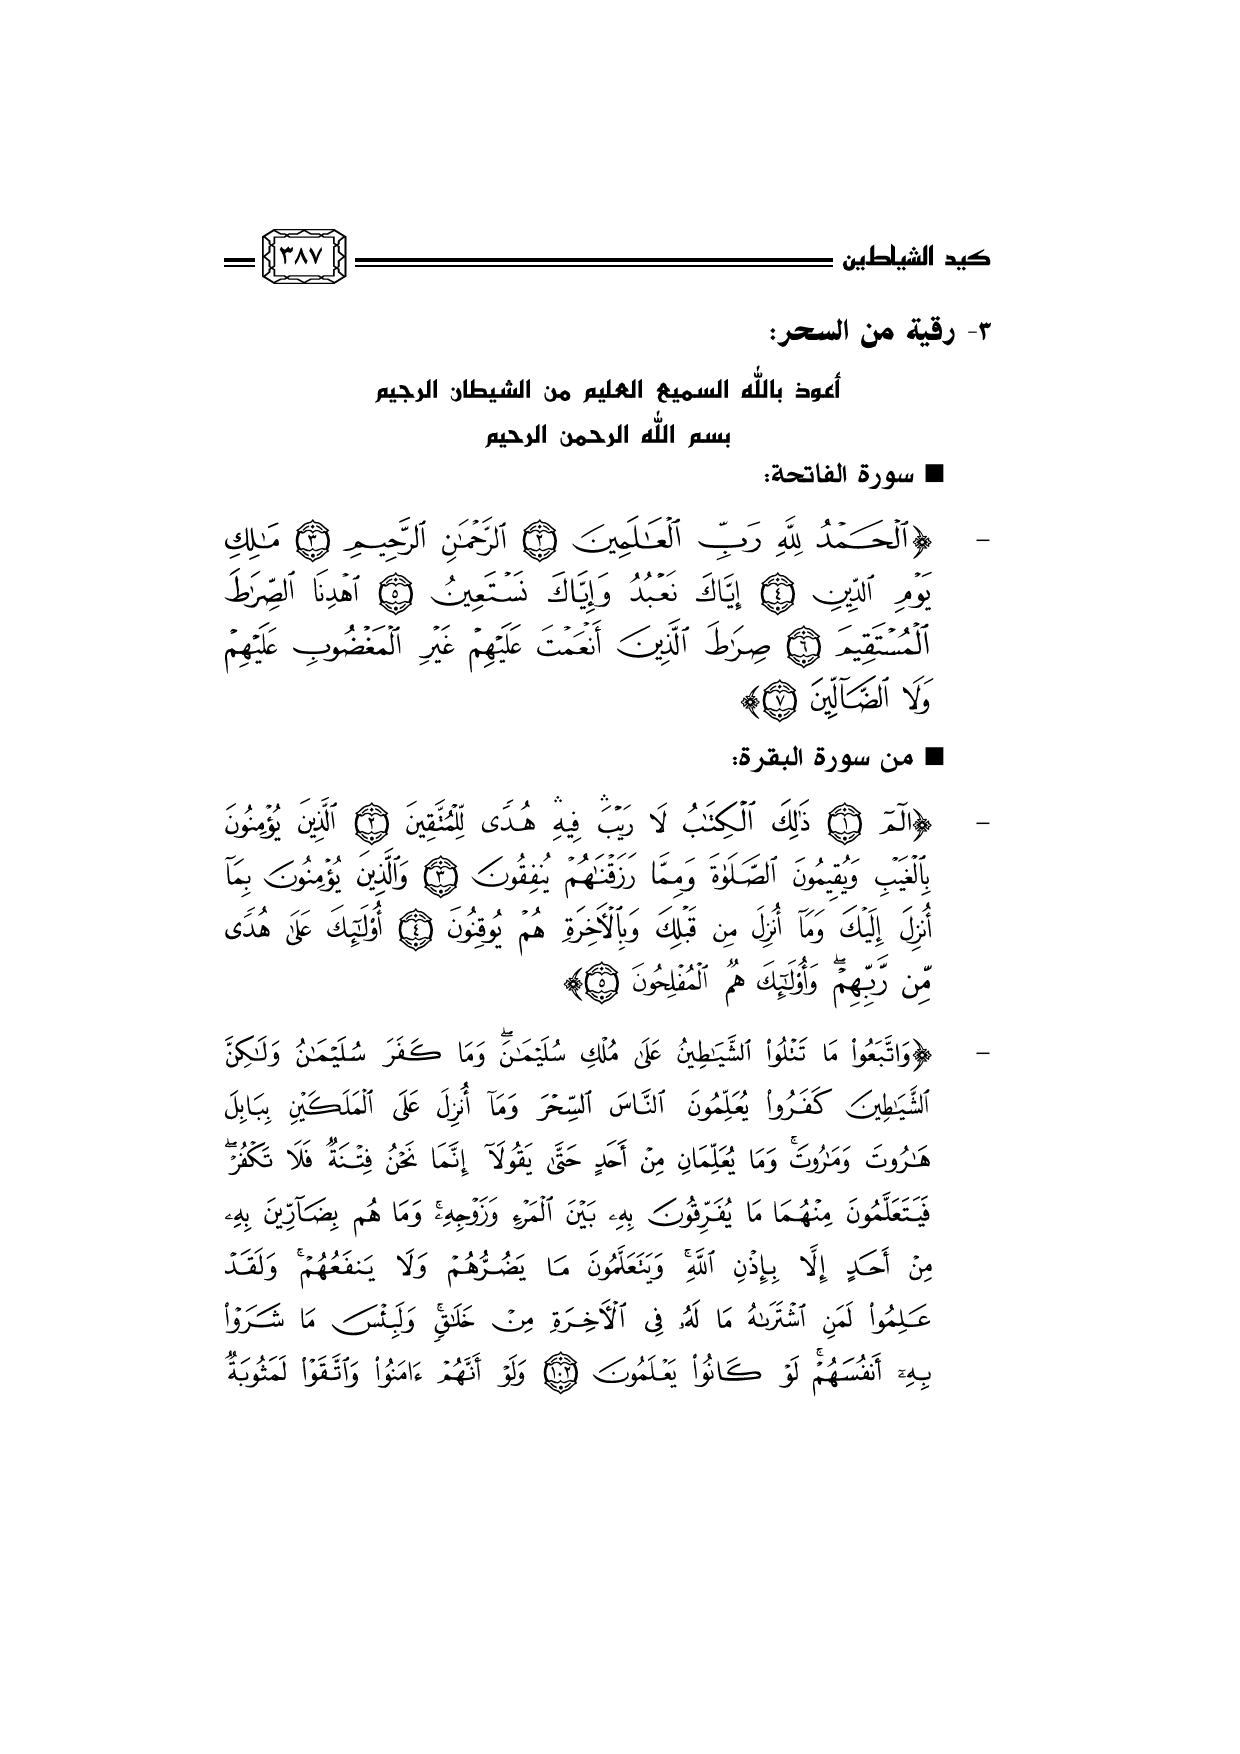 كيد الشياطين ٣٨٧
٣- رقية من السحر:
أعوذ بالله السميع العليم من الشيطان الرجيم
بسم الله الرحمن الرحيم
■ سورة الفاتحة:
- ﴿ٱلۡحَمۡدُ لِلَّهِ رَبِّ ٱلۡعَٰلَمِينَ ٢ ٱلرَّحۡمَٰنِ ٱلرَّحِيمِ ٣ مَٰلِكِ
يَوۡمِ ٱلدِّينِ ٤ إِيَّاكَ نَعۡبُدُ وَإِيَّاكَ نَسۡتَعِينُ ٥ ٱهۡدِنَا ٱلصِّرَٰطَ
ٱلۡمُسۡتَقِيمَ ٦ صِرَٰطَ ٱلَّذِينَ أَنۡعَمۡتَ عَلَيۡهِمۡ غَيۡرِ ٱلۡمَغۡضُوبِ عَلَيۡهِمۡ
وَلَا ٱلضَّآلِّينَ ٧﴾
■ من سورة البقرة:
- ﴿الٓمٓ ١ ذَٰلِكَ ٱلۡكِتَٰبُ لَا رَيۡبَۛ فِيهِۛ هُدٗى لِّلۡمُتَّقِينَ ٢ ٱلَّذِينَ يُؤۡمِنُونَ
بِٱلۡغَيۡبِ وَيُقِيمُونَ ٱلصَّلَوٰةَ وَمِمَّا رَزَقۡنَٰهُمۡ يُنفِقُونَ ٣ وَٱلَّذِينَ يُؤۡمِنُونَ بِمَآ
أُنزِلَ إِلَيۡكَ وَمَآ أُنزِلَ مِن قَبۡلِكَ وَبِٱلۡأٓخِرَةِ هُمۡ يُوقِنُونَ ٤ أُوْلَٰٓئِكَ عَلَىٰ هُدٗى
مِّن رَّبِّهِمۡۖ وَأُوْلَٰٓئِكَ هُمُ ٱلۡمُفۡلِحُونَ ٥﴾
- ﴿وَٱتَّبَعُواْ مَا تَتۡلُواْ ٱلشَّيَٰطِينُ عَلَىٰ مُلۡكِ سُلَيۡمَٰنَۖ وَمَا كَفَرَ سُلَيۡمَٰنُ وَلَٰكِنَّ
ٱلشَّيَٰطِينَ كَفَرُواْ يُعَلِّمُونَ ٱلنَّاسَ ٱلسِّحۡرَ وَمَآ أُنزِلَ عَلَى ٱلۡمَلَكَيۡنِ بِبَابِلَ
هَٰرُوتَ وَمَٰرُوتَۚ وَمَا يُعَلِّمَانِ مِنۡ أَحَدٍ حَتَّىٰ يَقُولَآ إِنَّمَا نَحۡنُ فِتۡنَةٞ فَلَا تَكۡفُرۡۖ
فَيَتَعَلَّمُونَ مِنۡهُمَا مَا يُفَرِّقُونَ بِهِۦ بَيۡنَ ٱلۡمَرۡءِ وَزَوۡجِهِۦۚ وَمَا هُم بِضَآرِّينَ بِهِۦ
مِنۡ أَحَدٍ إِلَّا بِإِذۡنِ ٱللَّهِۚ وَيَتَعَلَّمُونَ مَا يَضُرُّهُمۡ وَلَا يَنفَعُهُمۡۚ وَلَقَدۡ
عَلِمُواْ لَمَنِ ٱشۡتَرَىٰهُ مَا لَهُۥ فِي ٱلۡأٓخِرَةِ مِنۡ خَلَٰقٖۚ وَلَبِئۡسَ مَا شَرَوۡاْ
بِهِۦٓ أَنفُسَهُمۡۚ لَوۡ كَانُواْ يَعۡلَمُونَ ١٠٢ وَلَوۡ أَنَّهُمۡ ءَامَنُواْ وَٱتَّقَوۡاْ لَمَثُوبَةٞ